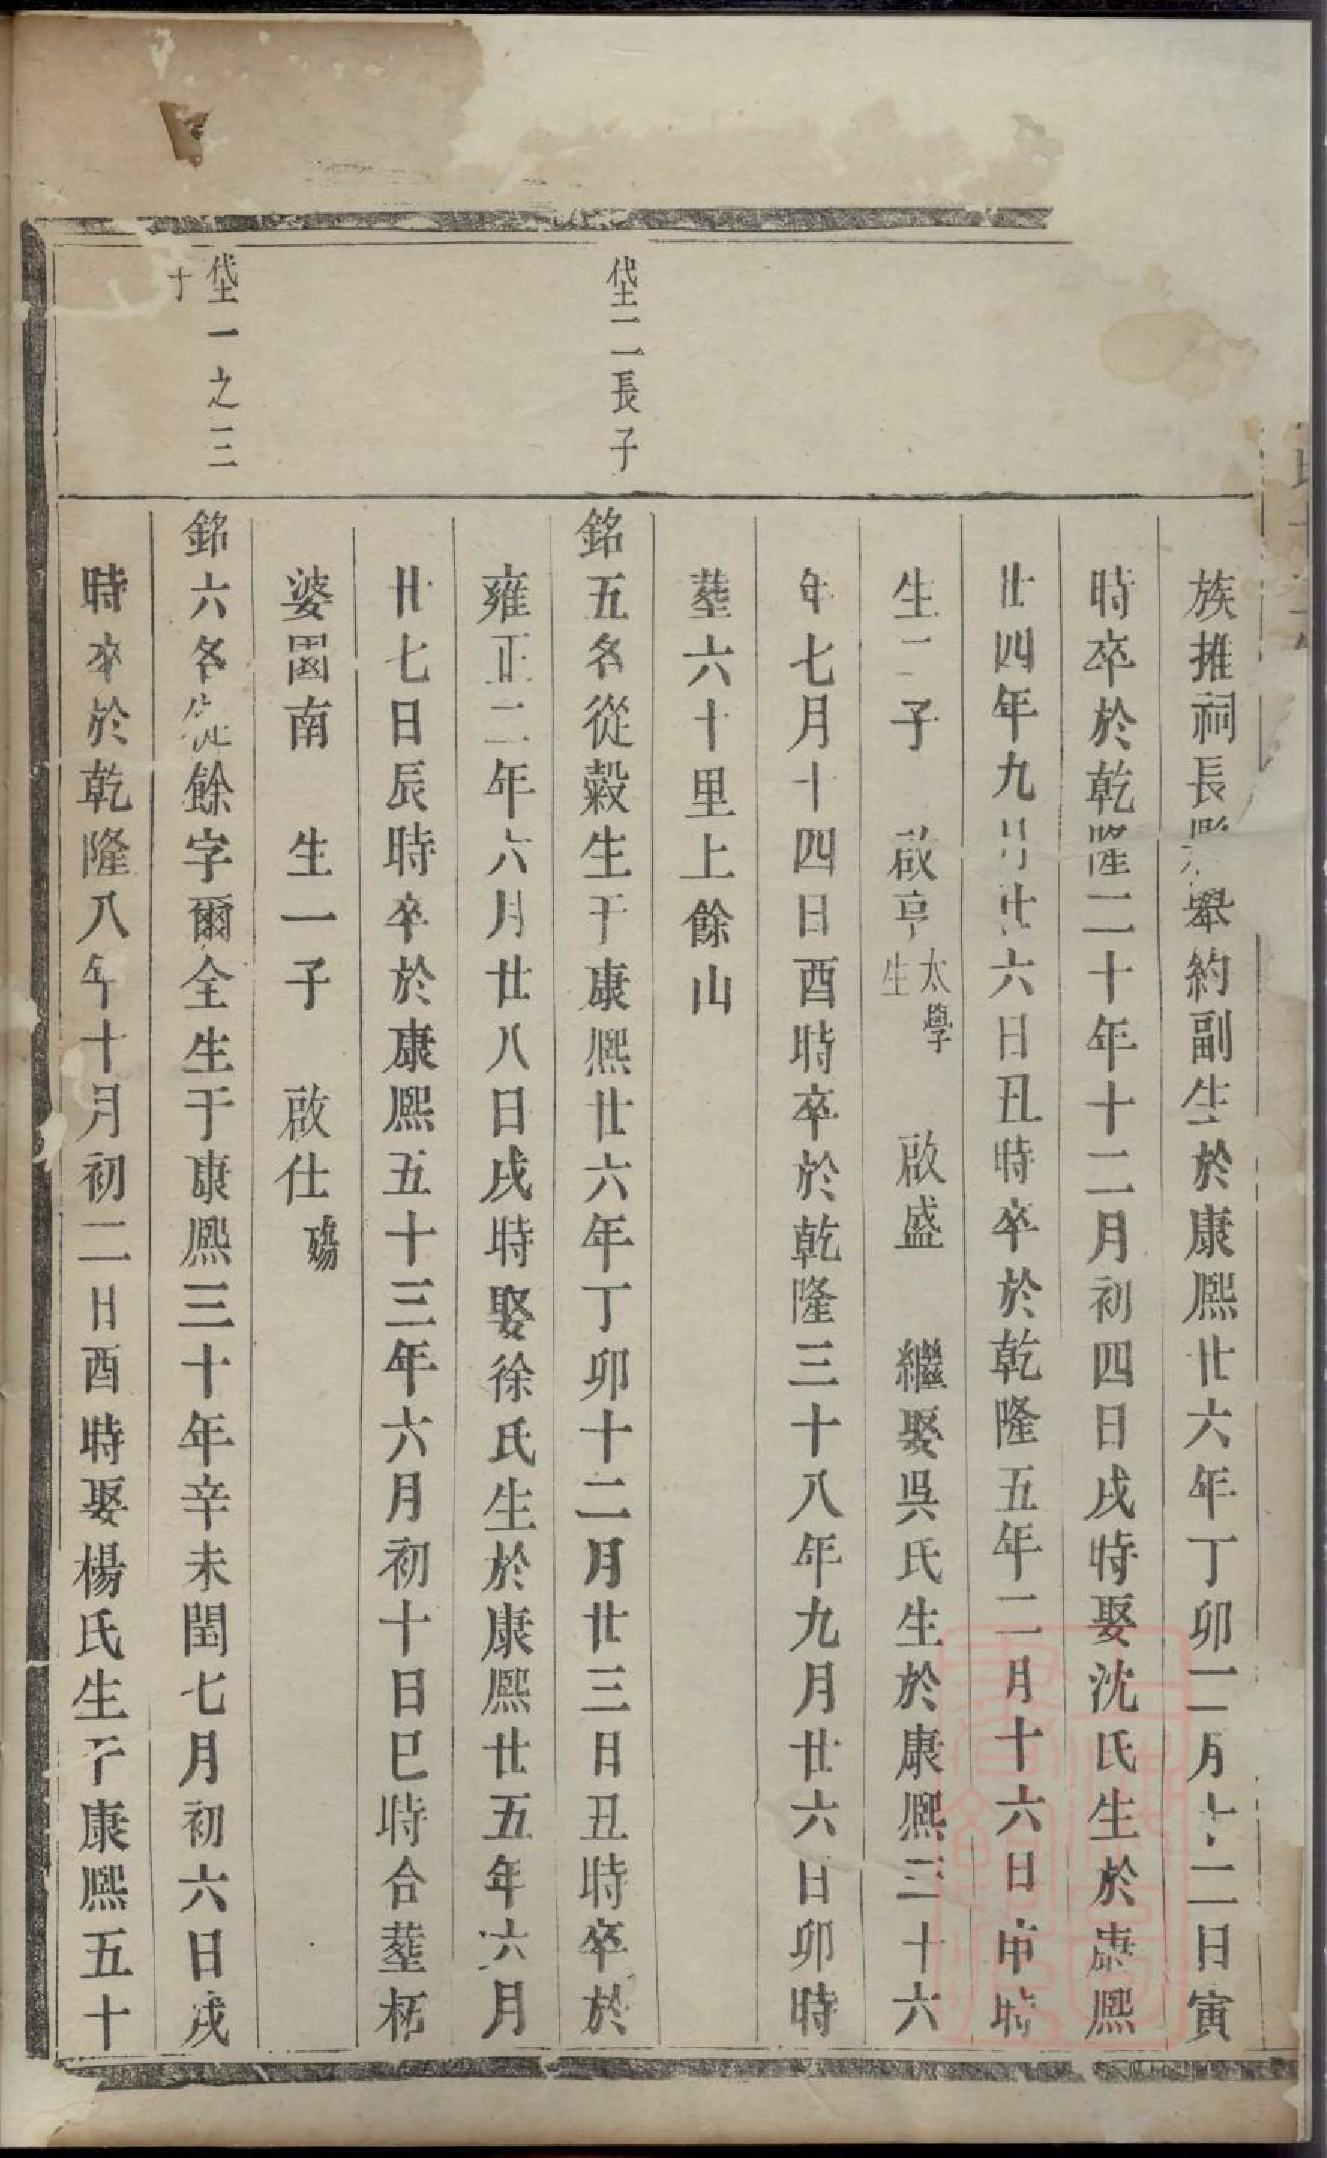 族推祠長縣舉約副生於康熙廿六年丁卯二月十二日寅
時卒於乾隆二十年十二月初四日戌時娶沈氏生於康熙
廿四年九月廿六日丑時卒於乾隆五年二月十六日申時
生二子 啟亨太學生 啟盛 繼娶吳氏生於康熙三十六
年七月十四日酉時卒於乾隆三十八年九月廿六日卯時
塟六十里上餘山
垈二長子
銘五名從榖生于康熙廿六年丁卯十二月廿三日丑時卒於
雍正二年六月廿八日戌時娶徐氏生於康熙廿五年六月
廿七日辰時卒於康熙五十三年六月初十日巳時合塟柘
婆園南 生一子 啟仕殤
垈一之三子
銘六名從餘字爾全生于康熙三十年辛未閏七月初六日戌
時卒於乾隆八年十月初二日酉時娶楊氏生于康熙五十